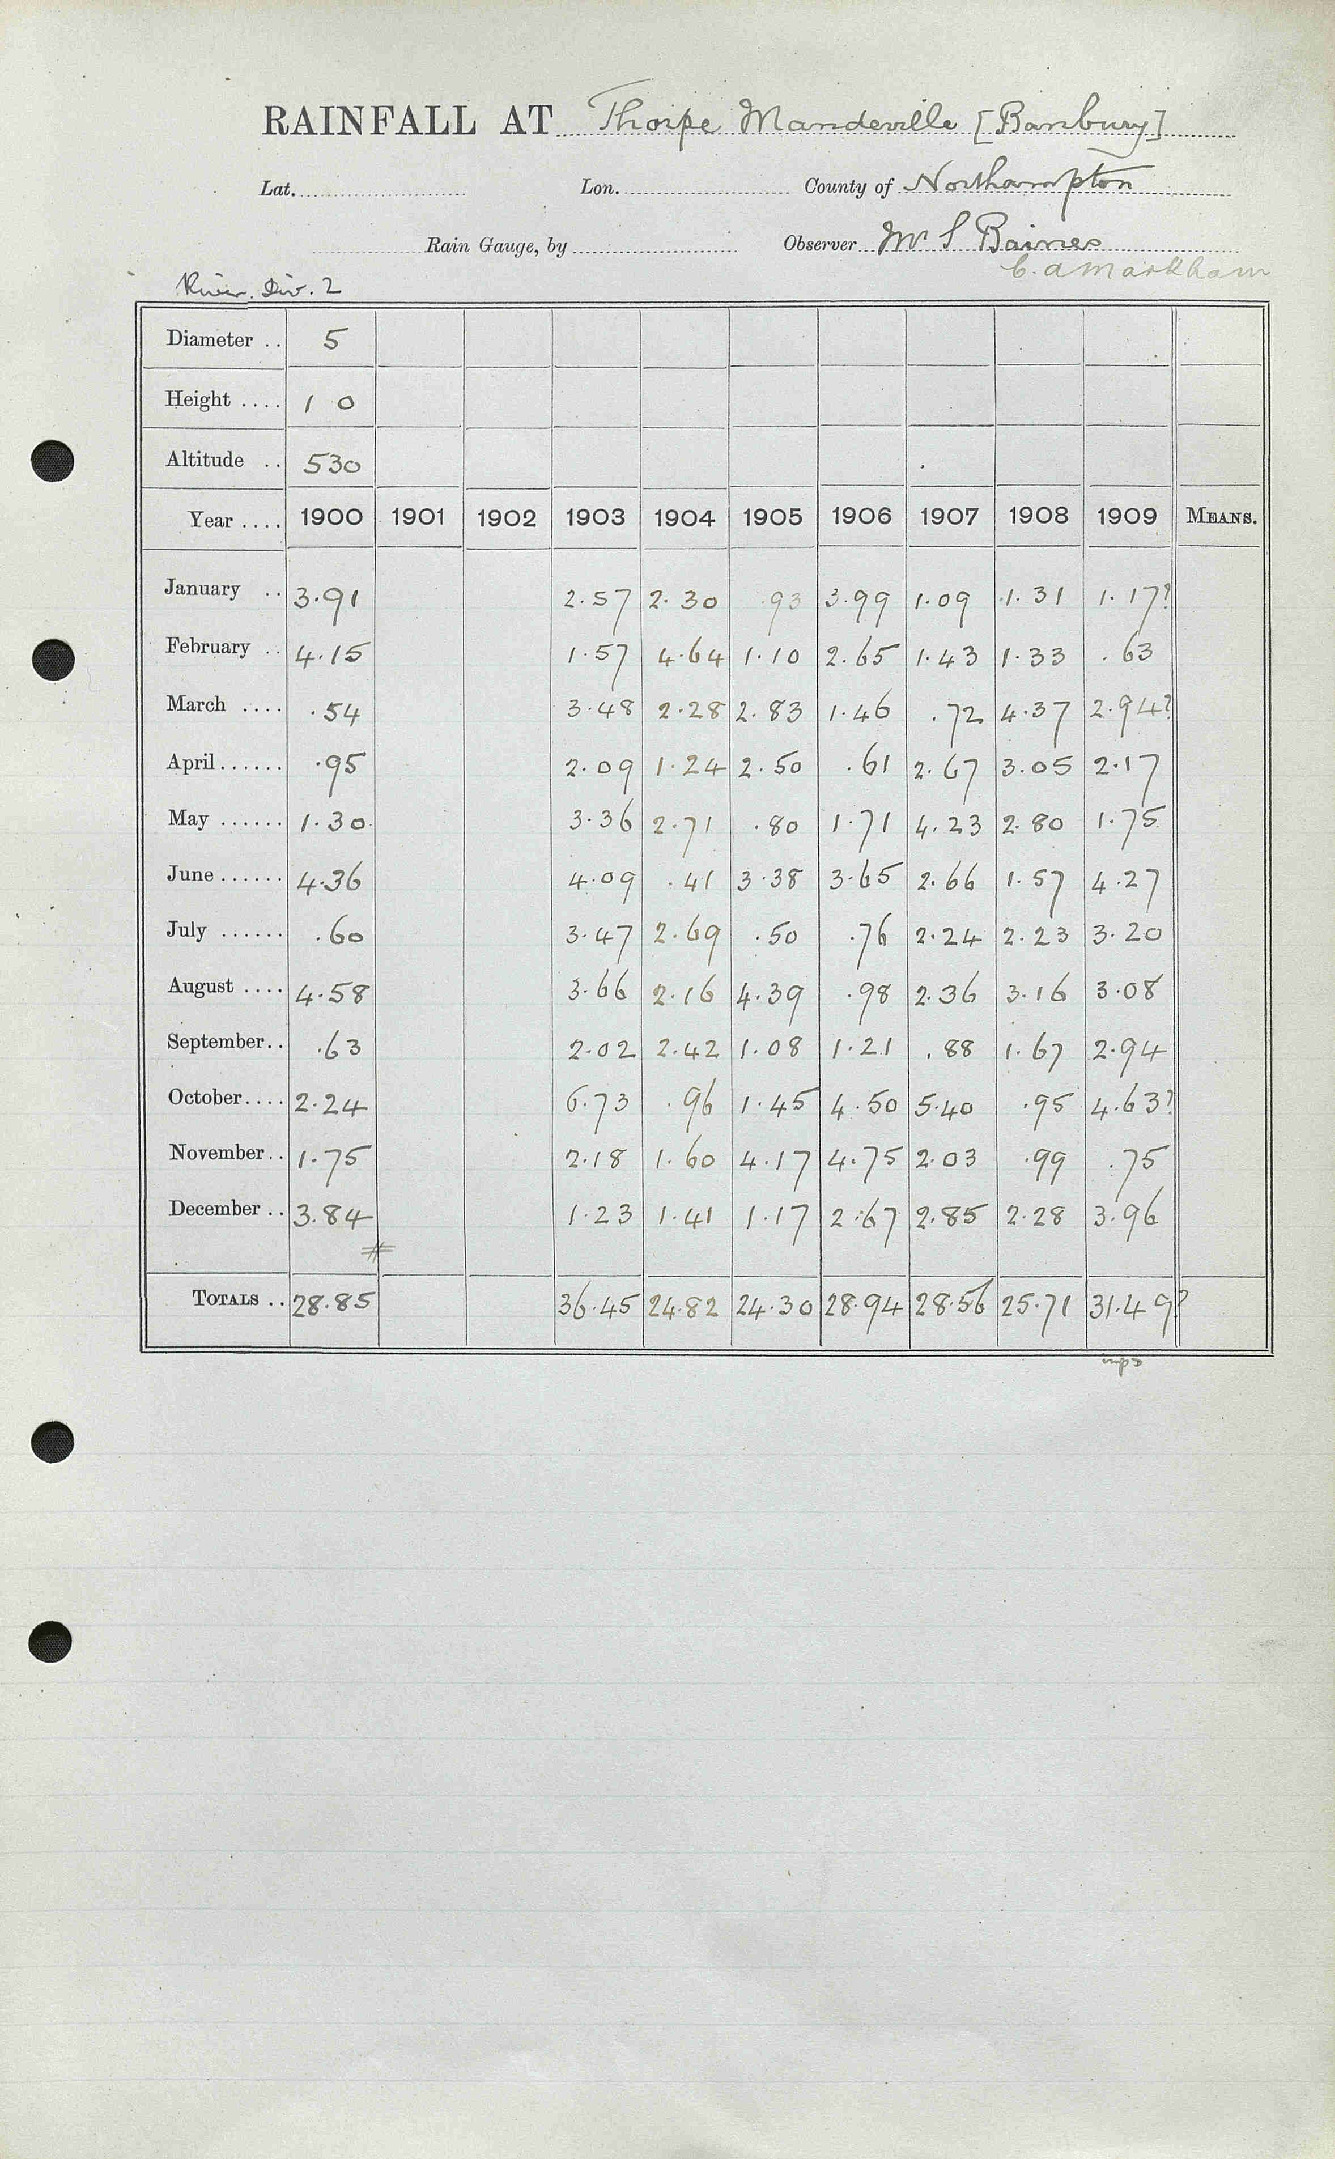 RAINFALL AT Thorpe Mandeville [Banbury]
Lat. Lon. County of Northampton
Rain Gauge, by Observer Mr S Baines
C. A Markham
River. Div. 2
Diameter .. 5
Height .... 1 0
Altitude .. 530
Year .... 1900 1901 1902 1903 1904 1905 1906 1907 1908 1909 MEANS.
January .. 3.91 2.57 2.30 .93 3.99 1.09 1.31 1.17?
February .. 4.15 1.57 4.64 1.10 2.65 1.43 1.33 .63
March .... .54 3.48 2.28 2.83 1.46 .72 4.37 2.94?
April ...... .95 2.09 1.24 2.50 .61 2.67 3.05 2.17
May ...... 1.30 3.36 2.71 .80 1.71 4.23 2.80 1.75
June ...... 4.36 4.09 .41 3.38 3.65 2.66 1.57 4.27
July ...... .60 3.47 2.69 .50 .76 2.24 2.23 3.20
August .... 4.58 3.66 2.16 4.39 .98 2.36 3.16 3.08
September .. .63 2.02 2.42 1.08 1.21 .88 1.67 2.94
October .... 2.24 6.73 .96 1.45 4.50 5.40 .95 4.63?
November .. 1.75 2.18 1.60 4.17 4.75 2.03 .99 .75
December .. 3.84 1.23 1.41 1.17 2.67 2.85 2.28 3.96
TOTALS .. 28.85 36.45 24.82 24.30 28.94 28.56 25.71 31.49?